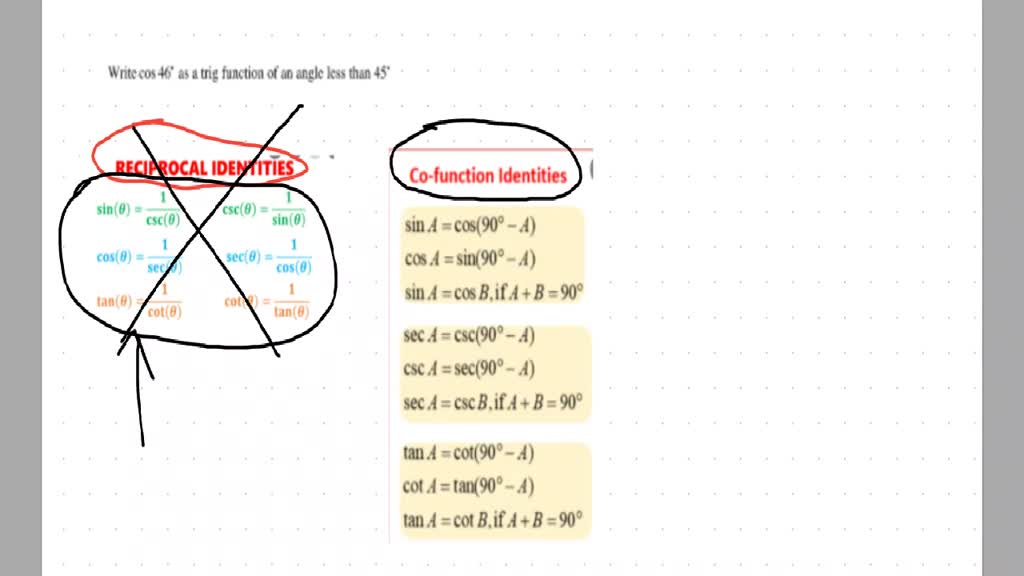 Write cos 46° as a trig function of an angle less than 45°
RECIPROCAL IDENTITIES
sin(θ) = 1/csc(θ) csc(θ) = 1/sin(θ)
cos(θ) = 1/sec(θ) sec(θ) = 1/cos(θ)
tan(θ) = 1/cot(θ) cot(θ) = 1/tan(θ)
Co-function Identities
sin A = cos(90° − A)
cos A = sin(90° − A)
sin A = cos B, if A + B = 90°
sec A = csc(90° − A)
csc A = sec(90° − A)
sec A = csc B, if A + B = 90°
tan A = cot(90° − A)
cot A = tan(90° − A)
tan A = cot B, if A + B = 90°